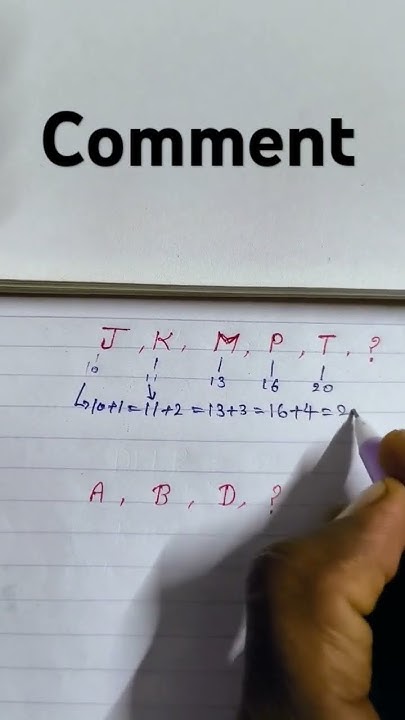 Comment
J , K , M , P , T , ?
10 11 13 16 20
↳10+1=11+2=13+3=16+4=2
A , B , D , ?